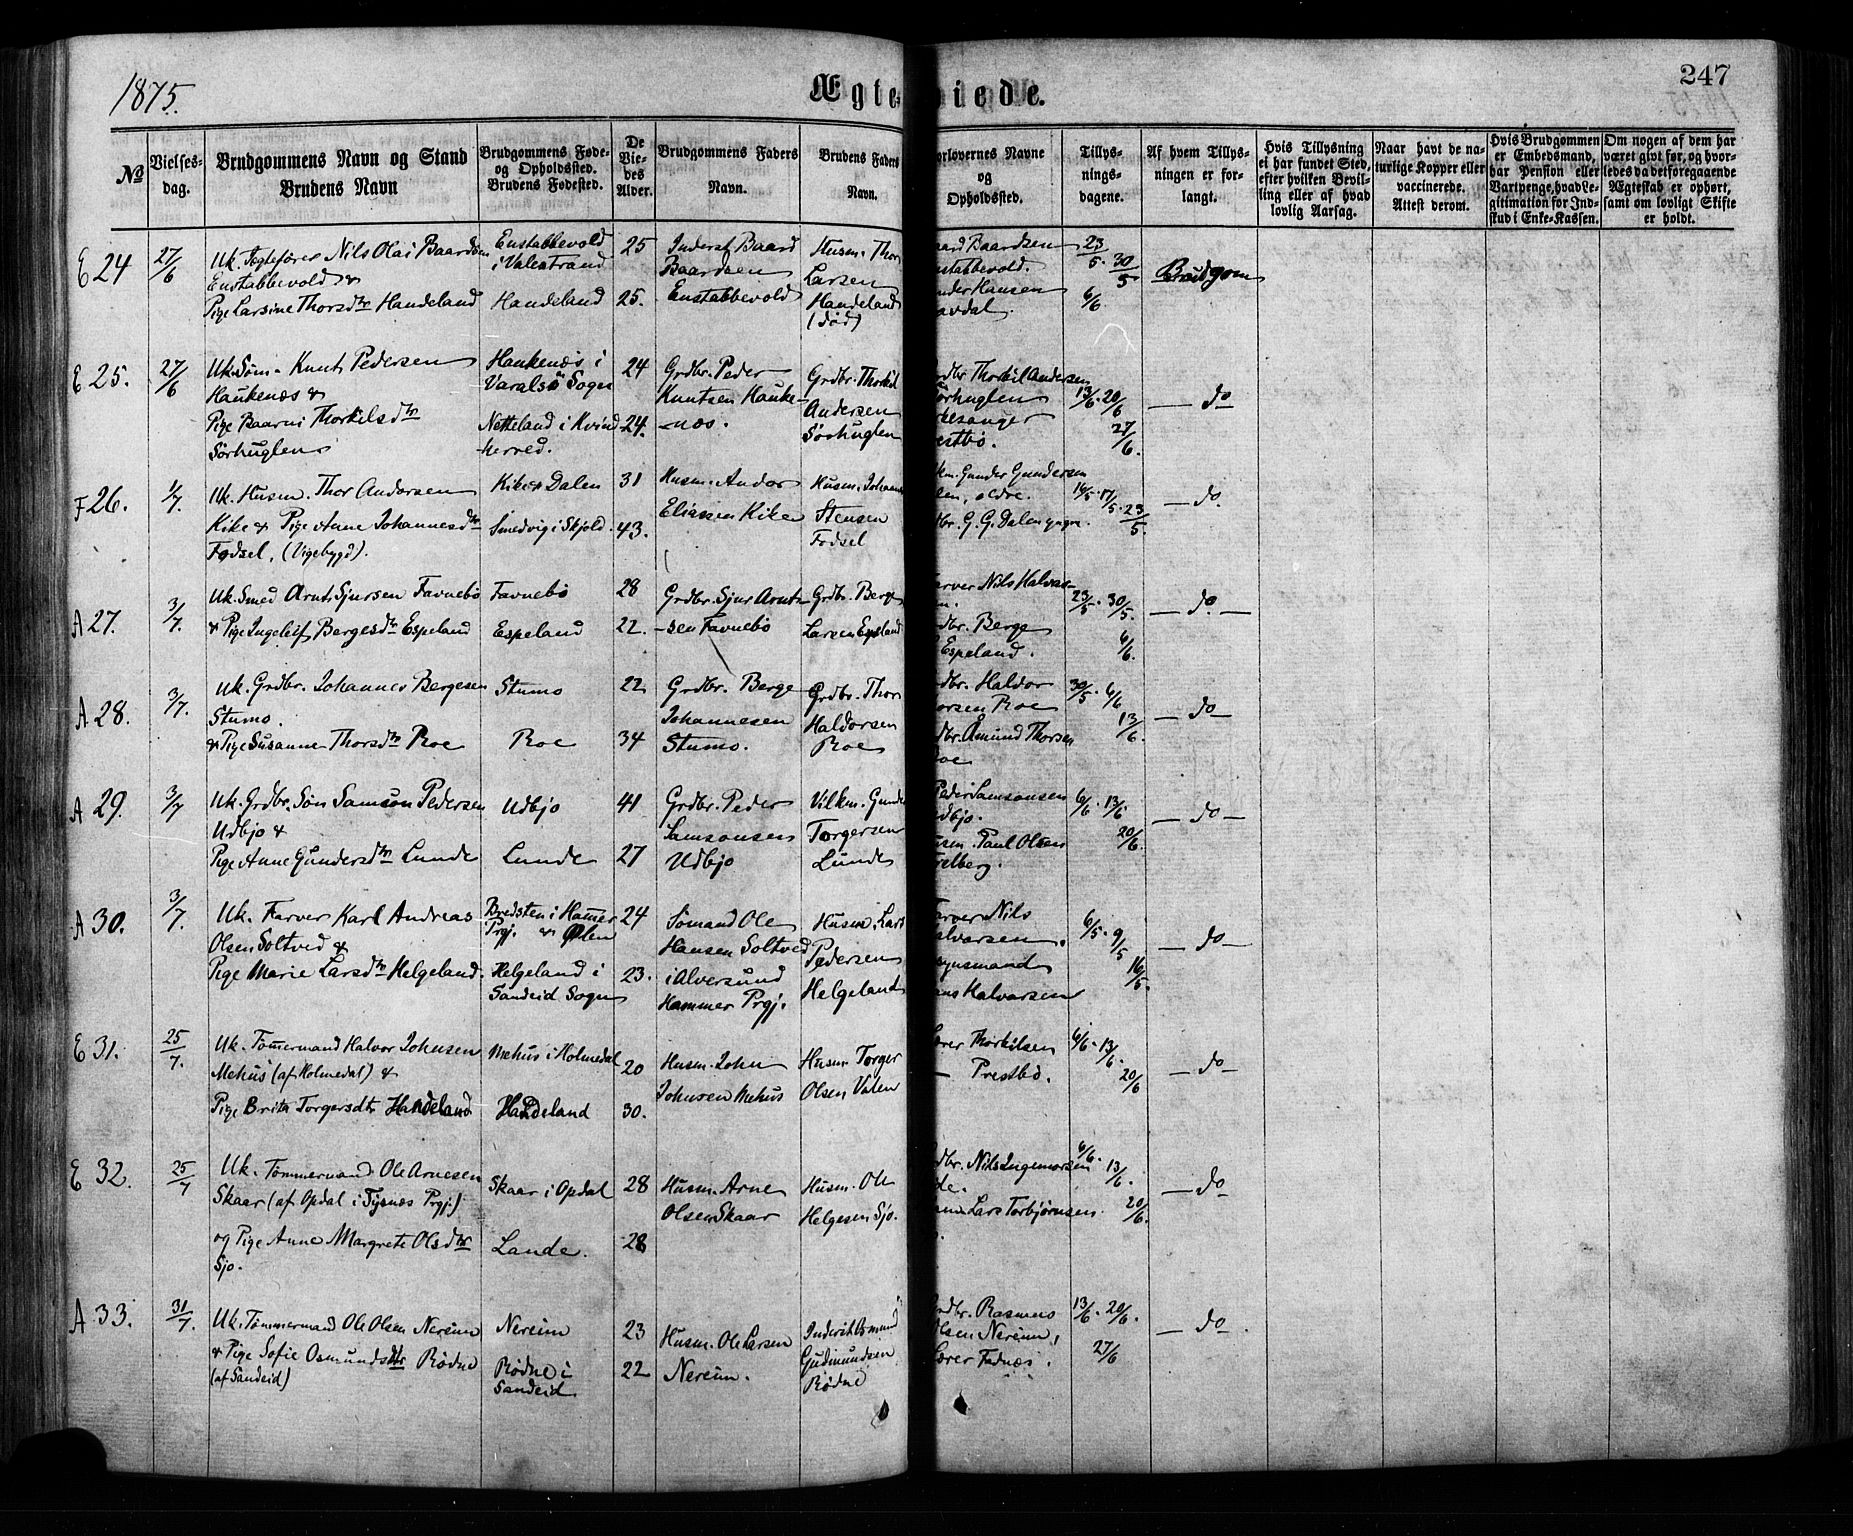 1875.
Ægteviede.
247
No
Vielses-
dag.
Brudgommens Navn og Stand
Brudens Navn
Brudgommens Føde-
og Opholdssted.
Brudens Fødested.
De
Vie-
des
Alder.
Brudgommens Faders
Navn.
Brudens Faders
Navn.
orlovernes Navne
og
Opholdssted.
Tillys-
nings-
dagene.
Af hvem Tillys-
ningen er for-
langt.
Hvis Tillysning
ei har fundet Sted,
efter hvilken Bevil-
ling eller af hvad
lovlig Aarsag.
Naar havt de na-
turlige Kopper eller
vaccinerede.
Attest derom.
Hvis Brudgommen
er Embedsmand,
har Pension eller
Vartpenge, hvad Le-
gitimation for Ind-
skud i Enke-Kassen.
Om nogen af dem har
været givt før, og hvor-
ledes da det foregaaende
Ægteskab er ophørt,
samt om lovligt Skifte
er holdt.
E 24
27/6
Uk. Tægtefører Nils Olai Baardsen
Enstabbevold &
Pige Larsine Thorsdtr Handeland
Enstabbevold
i Valestrand
Handeland
25
25.
Inderst Baard
Baardsen
Enstabbevold
Husm. Thor
Larsen
Handeland
(død)
aard Baardsen
nstabbevold.
nder Hansen
avdal.
23/5. 30/5
6/6
Brudgom
E 25.
27/6
Uk. Søm. Knut Pedersen
Haukenæs &
Pige Baarni Thorkilsdtr
Sørhuglen
Haukenæs i
Varalsö Sogn
Netteland i Kvind-
herred.
24
24.
Grdbr. Peder
Knutsen Hauke-
-næs.
Grdbr. Thorkil
Andersen
Sörhuglen
rdbr Thorkil Andersen
Sörhuglen
rkesanger
restbö.
13/6. 20/6
27/6.
— do
F 26.
1/7.
Uk. Husm. Thor Andersen
Kike & Pige Anne Johannesdtr
Fodsel, (Vigebygd).
Kike & Dalen
Smedvig i Skjold.
31
43.
Husm. Andor
Eliassen Kike
Husm. Johannes
Stensen
Fodsel
km. Gunder Gundersen
len, ældre.
dbr. G. G. Dalen yngre.
16/5. 17/5. 23/5.
— do.
A 27.
3/7.
Uk. Smed Arnt Sjursen Favnebö
& Pige Ingeleif Bergesdtr Espeland
Favnebö
Espeland
28
22.
Grdbr. Sjur Arnt-
-sen Favnebö
Grdbr. Berge
Larsen Espeland
arver Nils Halvar-
n.
dbr. Berge
Espeland.
23/5. 30/5.
6/6.
— do —
A 28.
3/7.
Uk. Grdbr. Johannes Bergesen
Stumo.
& Pige Susanne Thorsdtr Roe
Stumo
Roe
22
34
Grdbr. Berge
Johannesen
Stumo.
Grdbr. Thor
Haldorsen
Roe
dbr. Haldor
orsen Roe
dbr. Åmund Thorsen
oe
30/5. 6/6
13/6.
— do —
A 29.
3/7
Uk. Grdbr. Søn Samson Pedersen
Udbjo &
Pige Anne Gundersdtr Lunde
Udbjo
Lunde
41
27
Grdbr. Peder
Samsonsen
Udbjo
Vilkm. Gunder
Torgersen
Lunde
Peder Samsonsen
dbjo.
usm. Paul Olsen
relberg.
6/6. 13/6.
20/6.
— do —
A 30.
3/7.
Uk. Farver Karl Andreas
Olsen Soltved &
Pige Marie Larsdtr Helgeland.
Bredsten i Hammer
Prgj. & Ølen
Helgeland i
Sandeid Sogn
24
23.
Sømand Ole
Hansen Soltved
i Alversund
Hammer Prgj.
Husm. Lars
Pedersen
Helgeland
Farver Nils
alvarsen.
ynsmand
ans Halvarsen
6/5. 9/5
16/5.
— do —
E 31.
25/7.
Uk. Tömermand Halvor Johnsen
Mehus (af Holmedal) &
Pige Brita Torgersdtr Handeland
Mehus i Holmedal
Handeland
20
30.
Husm. John
Johnsen Mehus
Husm. Torger
Olsen Vaten
ærer Thorkilsen
— Prestbö.
6/6. 13/6.
20/6
— do —
E 32.
25/7
Uk. Tömmermand Ole Arnesen
Skaar (af Opdal i Tysnæs Prgj.)
og Pige Anne Margrete Olsdtr
Sjo.
Skaar i Opdal
Lande.
28
28
Husm. Arne
Olsen Skaar
Husm. Ole
Helgesen Sjo.
dbr. Nils Ingemorsen
de.
Lars Torbjörnsen.
6/6. 13/6.
20/6.
— do —
A 33.
31/7.
Uk. Tömmermand Ole Olsen Nereim
& Pige Sofie Osmundsdtr Rödne
(af Sandeid)
Nereim
Rödne i
Sandeid
23
22
Husm. Ole Larsen
Nereim.
Inderst Osmund
Gudmundsen
Rödne
Grdbr. Rasmus
Olsen Nereim,
Lærer Fadnæs.
13/6. 20/6.
27/6
— do —